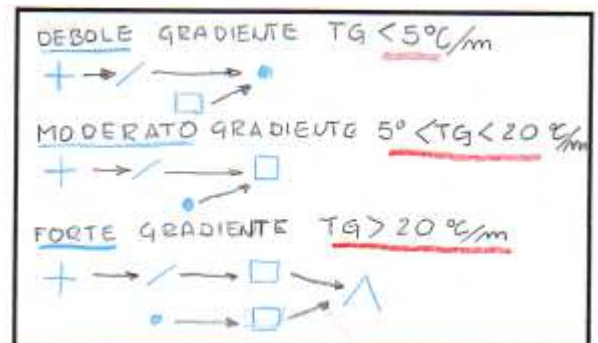 DEBOLE GRADIENTE TG < 5°C/m
MODERATO GRADIENTE 5° < TG < 20 °C/m
FORTE GRADIENTE TG > 20 °C/m